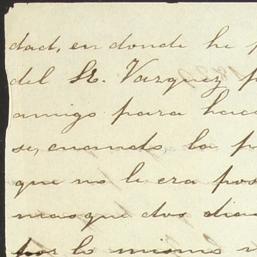 dad, en donde he
del Sr. Vazquez
amigo para hac
se, cuando la p
que no le era pos
mas que dos dias
por lo mismo